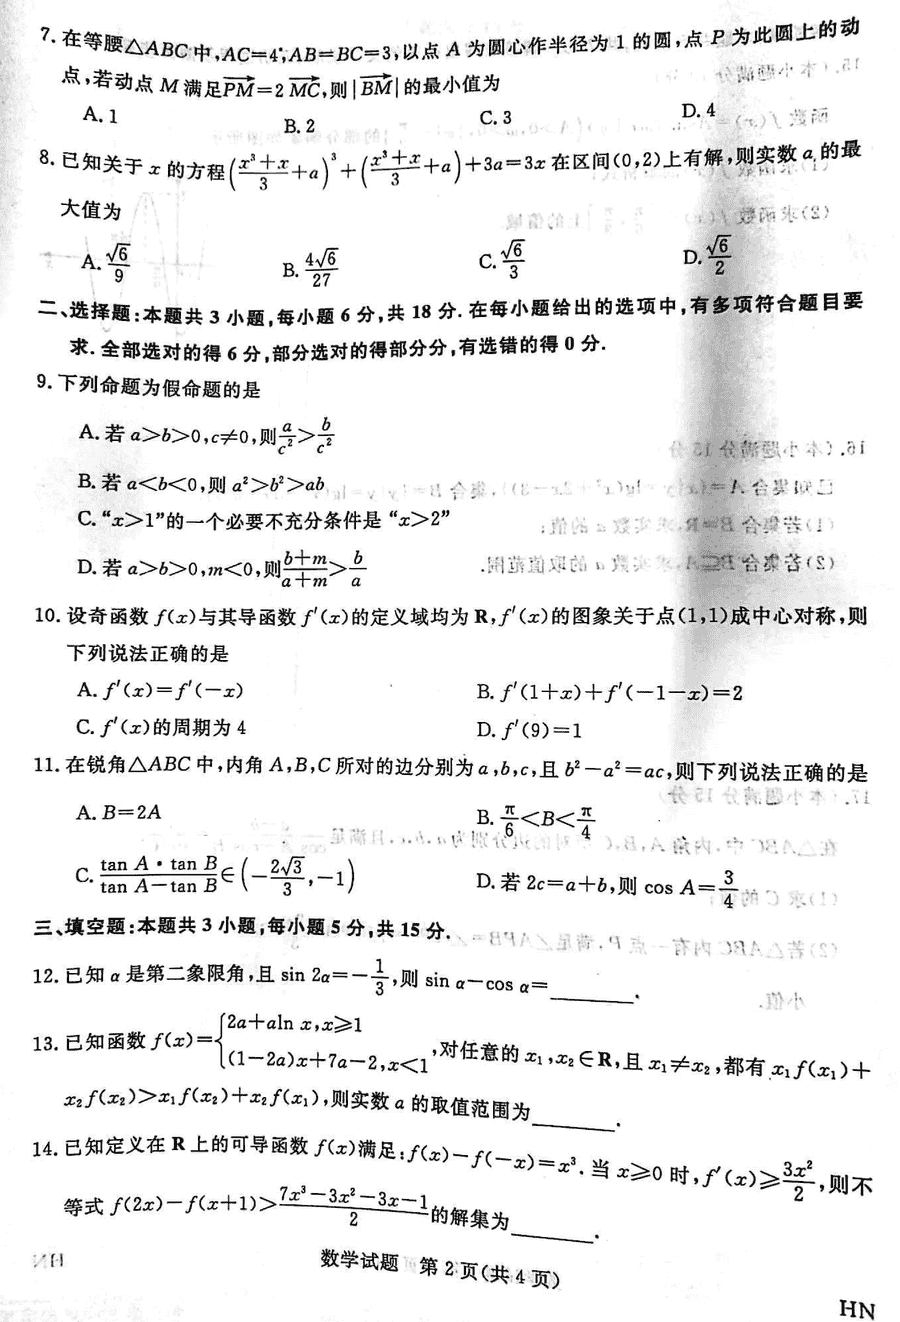 7.在等腰△ABC中,AC=4,AB=BC=3,以点 A 为圆心作半径为 1 的圆,点 P 为此圆上的动
点,若动点 M 满足\overrightarrow{PM}=2\overrightarrow{MC},则|\overrightarrow{BM}|的最小值为
A.1 B.2 C.3 D.4
8.已知关于 x 的方程(\frac{x³+x}{3}+a)³+(\frac{x³+x}{3}+a)+3a=3x 在区间(0,2)上有解,则实数 a 的最
大值为
A.\frac{√6}{9} B.\frac{4√6}{27} C.\frac{√6}{3} D.\frac{√6}{2}
二、选择题:本题共 3 小题,每小题 6 分,共 18 分.在每小题给出的选项中,有多项符合题目要
求.全部选对的得 6 分,部分选对的得部分分,有选错的得 0 分.
9.下列命题为假命题的是
A.若 a>b>0,c≠0,则\frac{a}{c²}>\frac{b}{c²}
B.若 a<b<0,则 a²>b²>ab
C.“x>1”的一个必要不充分条件是“x>2”
D.若 a>b>0,m<0,则\frac{b+m}{a+m}>\frac{b}{a}
10.设奇函数 f(x)与其导函数 f′(x)的定义域均为 R,f′(x)的图象关于点(1,1)成中心对称,则
下列说法正确的是
A.f′(x)=f′(-x) B.f′(1+x)+f′(-1-x)=2
C.f′(x)的周期为 4 D.f′(9)=1
11.在锐角△ABC 中,内角 A,B,C 所对的边分别为 a,b,c,且 b²-a²=ac,则下列说法正确的是
A.B=2A B.\frac{π}{6}<B<\frac{π}{4}
C.\frac{tan A·tan B}{tan A-tan B}∈(-\frac{2√3}{3},-1) D.若 2c=a+b,则 cos A=\frac{3}{4}
三、填空题:本题共 3 小题,每小题 5 分,共 15 分.
12.已知 α 是第二象限角,且 sin 2α=-\frac{1}{3},则 sin α-cos α=______.
13.已知函数 f(x)={2a+aln x,x≥1
(1-2a)x+7a-2,x<1,对任意的 x₁,x₂∈R,且 x₁≠x₂,都有 x₁f(x₁)+
x₂f(x₂)>x₁f(x₂)+x₂f(x₁),则实数 a 的取值范围为______.
14.已知定义在 R 上的可导函数 f(x)满足:f(x)-f(-x)=x³.当 x≥0 时,f′(x)≥\frac{3x²}{2},则不
等式 f(2x)-f(x+1)>\frac{7x³-3x²-3x-1}{2}的解集为______.
数学试题 第 2 页(共 4 页)
HN